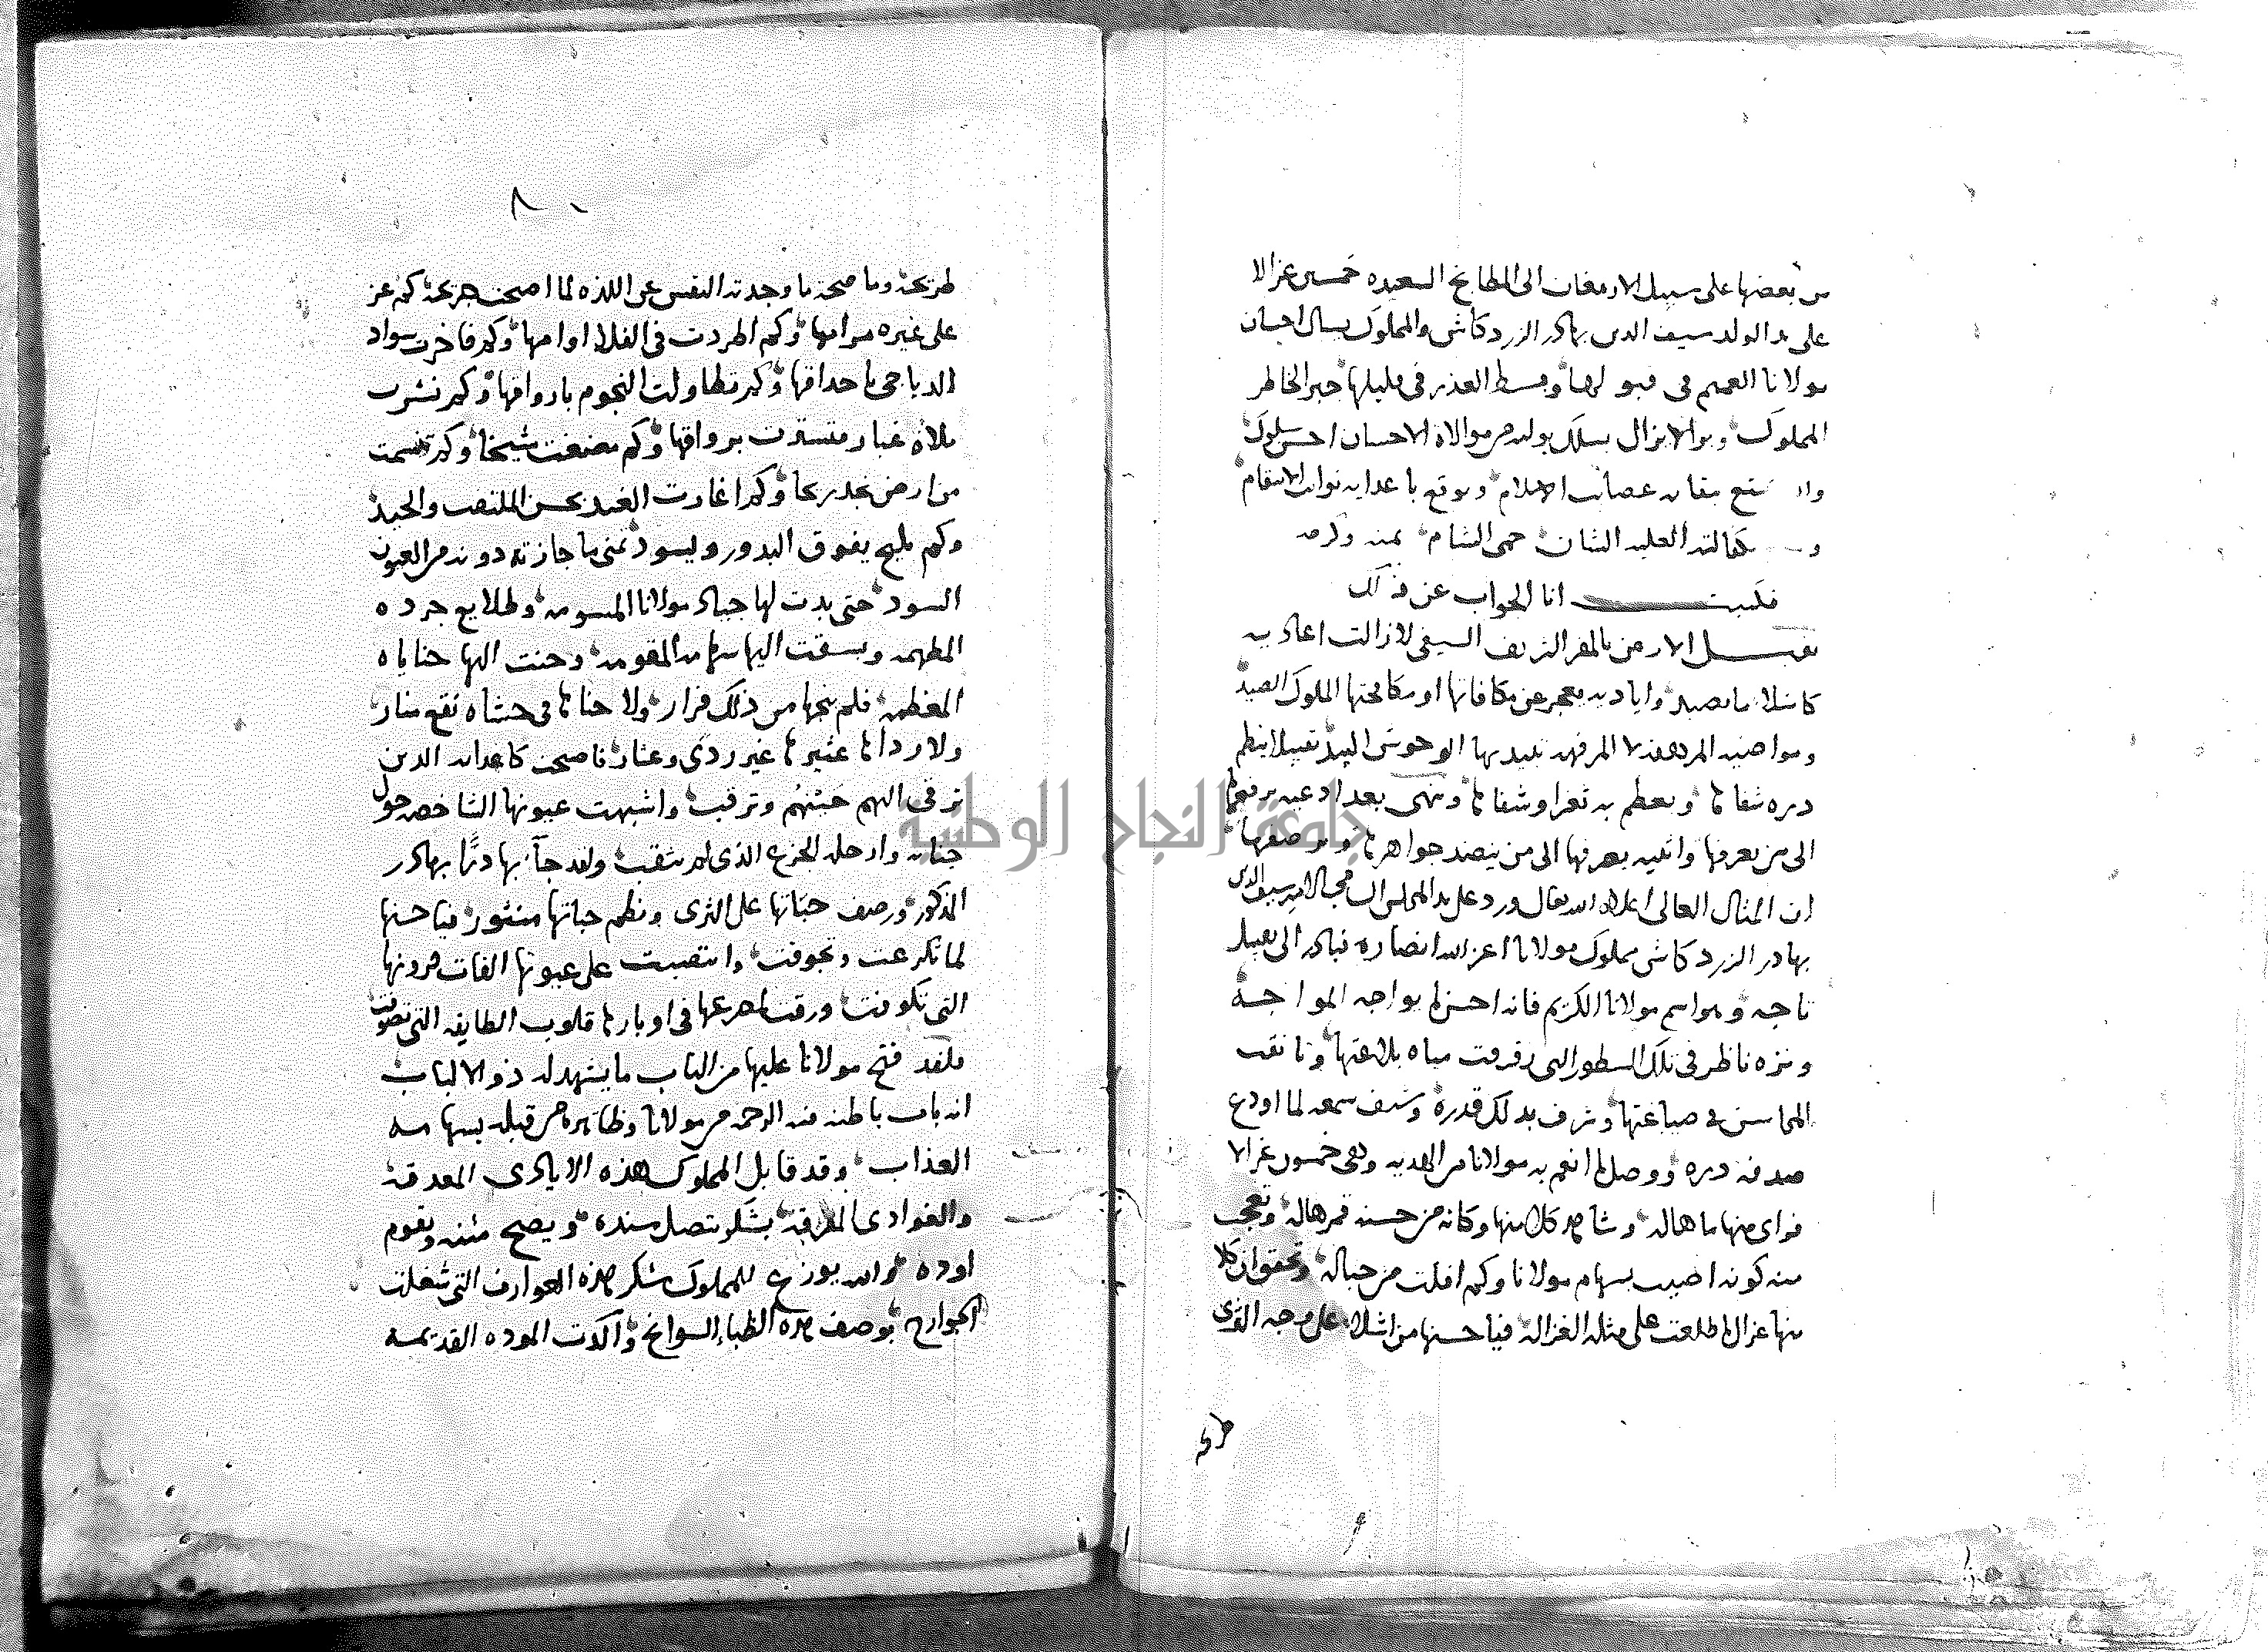 من بعضها على سبيل الارمغان الى المطابخ السعيده خمسين غزالا
على يد الولد سيف الدين بهادر الزردكاش والمملوك يسال احسان
مولانا العميم في قبولها وبسط العذر في قليلها جبر الخاطر
المملوك والله لا يزال يسلك بوليه من موالاة الاحسان احسن سلوك
بقايه عصايب الاسلام ويوقع باعدايه نوايب الانتقام
بكفالته العليه الشان حمى الشام بمنه وكرمه
فكتبت انا الجواب عن ذلك
يقبل الارض بالمقر الشريف السيفي لا زالت اعاديه
كاشلا ما يصيد واياديه يعجز عن مكافاتها او مكافحتها الملوك الصيد
ومواضيه المرهفه لا المرفهه تبيد بها الوحوش البيد تقبيلا ينظم
دره شفاها ويعظم به ثغرا وشفاها وينهي بعد ادعيه يرفعها
الى من يعرفها واثنيه يعرفها الى من ينضد جواهرها ويرصفها
ان المثال العالي اعلاه الله تعالى ورد على يد المجلس السامي الامير سيف الدين
بهادر الزردكاش مملوك مولانا اعز الله انصاره فبادر الى تقبيل
تاجه وهو اسم مولانا الكريم فانه احسن ما يواجه المواجه
ونزه ناظره في تلك السطور التي رقرقت مياه بلاغتها وتانقت
المحاسن في صياغتها وشرف بذلك قدره وشنف سمعه لما اودع
صدفه دره ووصل ما انعم به مولانا من الهديه وهي خمسون غزالا
فراى منها ما هاله وشاهد كلا منها وكانه من حسنه قمر هاله وتعجب
منه كونه اصيب بسهام مولانا وكم افلت من حباله وتحقق ان كلا
منها غزال ما طلعت على مثله الغزاله فيا حسنها من اشلاء على وجه الثرى
طريحه
٨٠
طريحه وما صحه ما وجدته النفس من اللذه لما اصبحت جريحه كم عز
على غيره مرامها وكم اطردت في الفلا اوامها وكم فاخرت سواد
الدياجي باحداقها وكم تطاولت النجوم باروافها وكم نشرت
ملاة غبار وتسترت برواقها وكم مضغت شيحا وكم تنسمت
من ارض نجد ريحا وكم اغارت الغيد بحسن الملتفت والجيد
وكم مليح يفوق البدور ويسود تمنى ما حازته دونه من العيون
السود حتى بدت لها جياد مولانا المسومه وطلايع جرده
المطهمه وسبقت اليها سهامه المقومه وحنت اليها حناياه
المعظمه فلم ينجها من ذلك فرار ولا خباها في حشاه نقع مثار
ولا رداها عثيرها غير ردى وعثار فاصبحت كاعدايه الذين
ترقى اليهم حيثهم وترقب واشبهت عيونها الشاخصه حول
خبايه وارحله الجزع الذي لم يثقب ولقد جا بها درا بهادر
المذكور ورصف حباتها على الثرى ونظم حباتها منثور فيا حسنها
لما تكرعت وتجوفت وانتصبت على عيونها الفات قرونها
التي تكوفت ورقت لمصرعها في اوبارها قلوب الطايفه التي تصوفت
فلقد فتح مولانا عليها من الباب ما يشهد له ذوو الالباب
انه باب باطنه فيه الرحمه من مولانا وظاهره من قبله بسهامه
العذاب وقد قابل المملوك هذه الايادي المغدقه
والغوادي المغرقه بشكر يتصل سنده ويصح متنه ويقوم
اوده والله يوزع المملوك شكر هذه العوارف التي شغلت
الجوارح بوصف هذه الظباء السوانح واكدت الموده القديمه
جامعة النجاح الوطنية